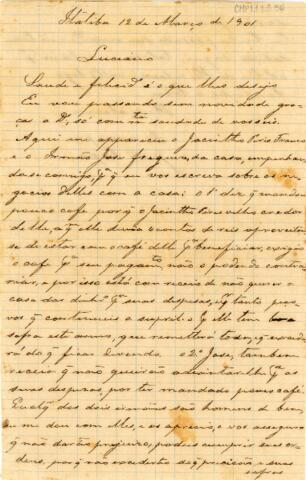 Itatiba 12 de Março de 1901
Luciano
Saude e felicid.e é o que lhes desejo
Eu vou passando sem novidade gra-
ças a D.s, só com m.ta saudade de vosseis.
Aqui me appareceu o Jacintho Pires Franco
e o Irmão José freguez da casa, empenhan-
do-se comigo, p.a q eu vos escreva sobre os ne-
gocios delles com a casa: o 1o diz q mandou
pouco café porq o Jacintho Pires velho credor
delle, a q elle devia contos de reis aproveitou
se de estar com o café delle p.a beneficiar, exigio
o café p.a seu pagam.to, não o podendo contra-
riar, e por isso está com receio de não querer a
casa dar dinh.o p.a suas despesas, q tanto pro-
vos q continueis a supril-o q elle tem boa
safra este anno, que remetterá todo,
divendo. o 2o José, tambem
receia q não queirão
suas despezas, por ter mandado pouco café.
Eu a q dos dois irmãos são homens de bem,
eu me dou com elles, e os aprecio, e vos asseguro
q não darão prejuizo, podeis cumprir suas or-
dens, porq não excederão da precisão e suas
safras